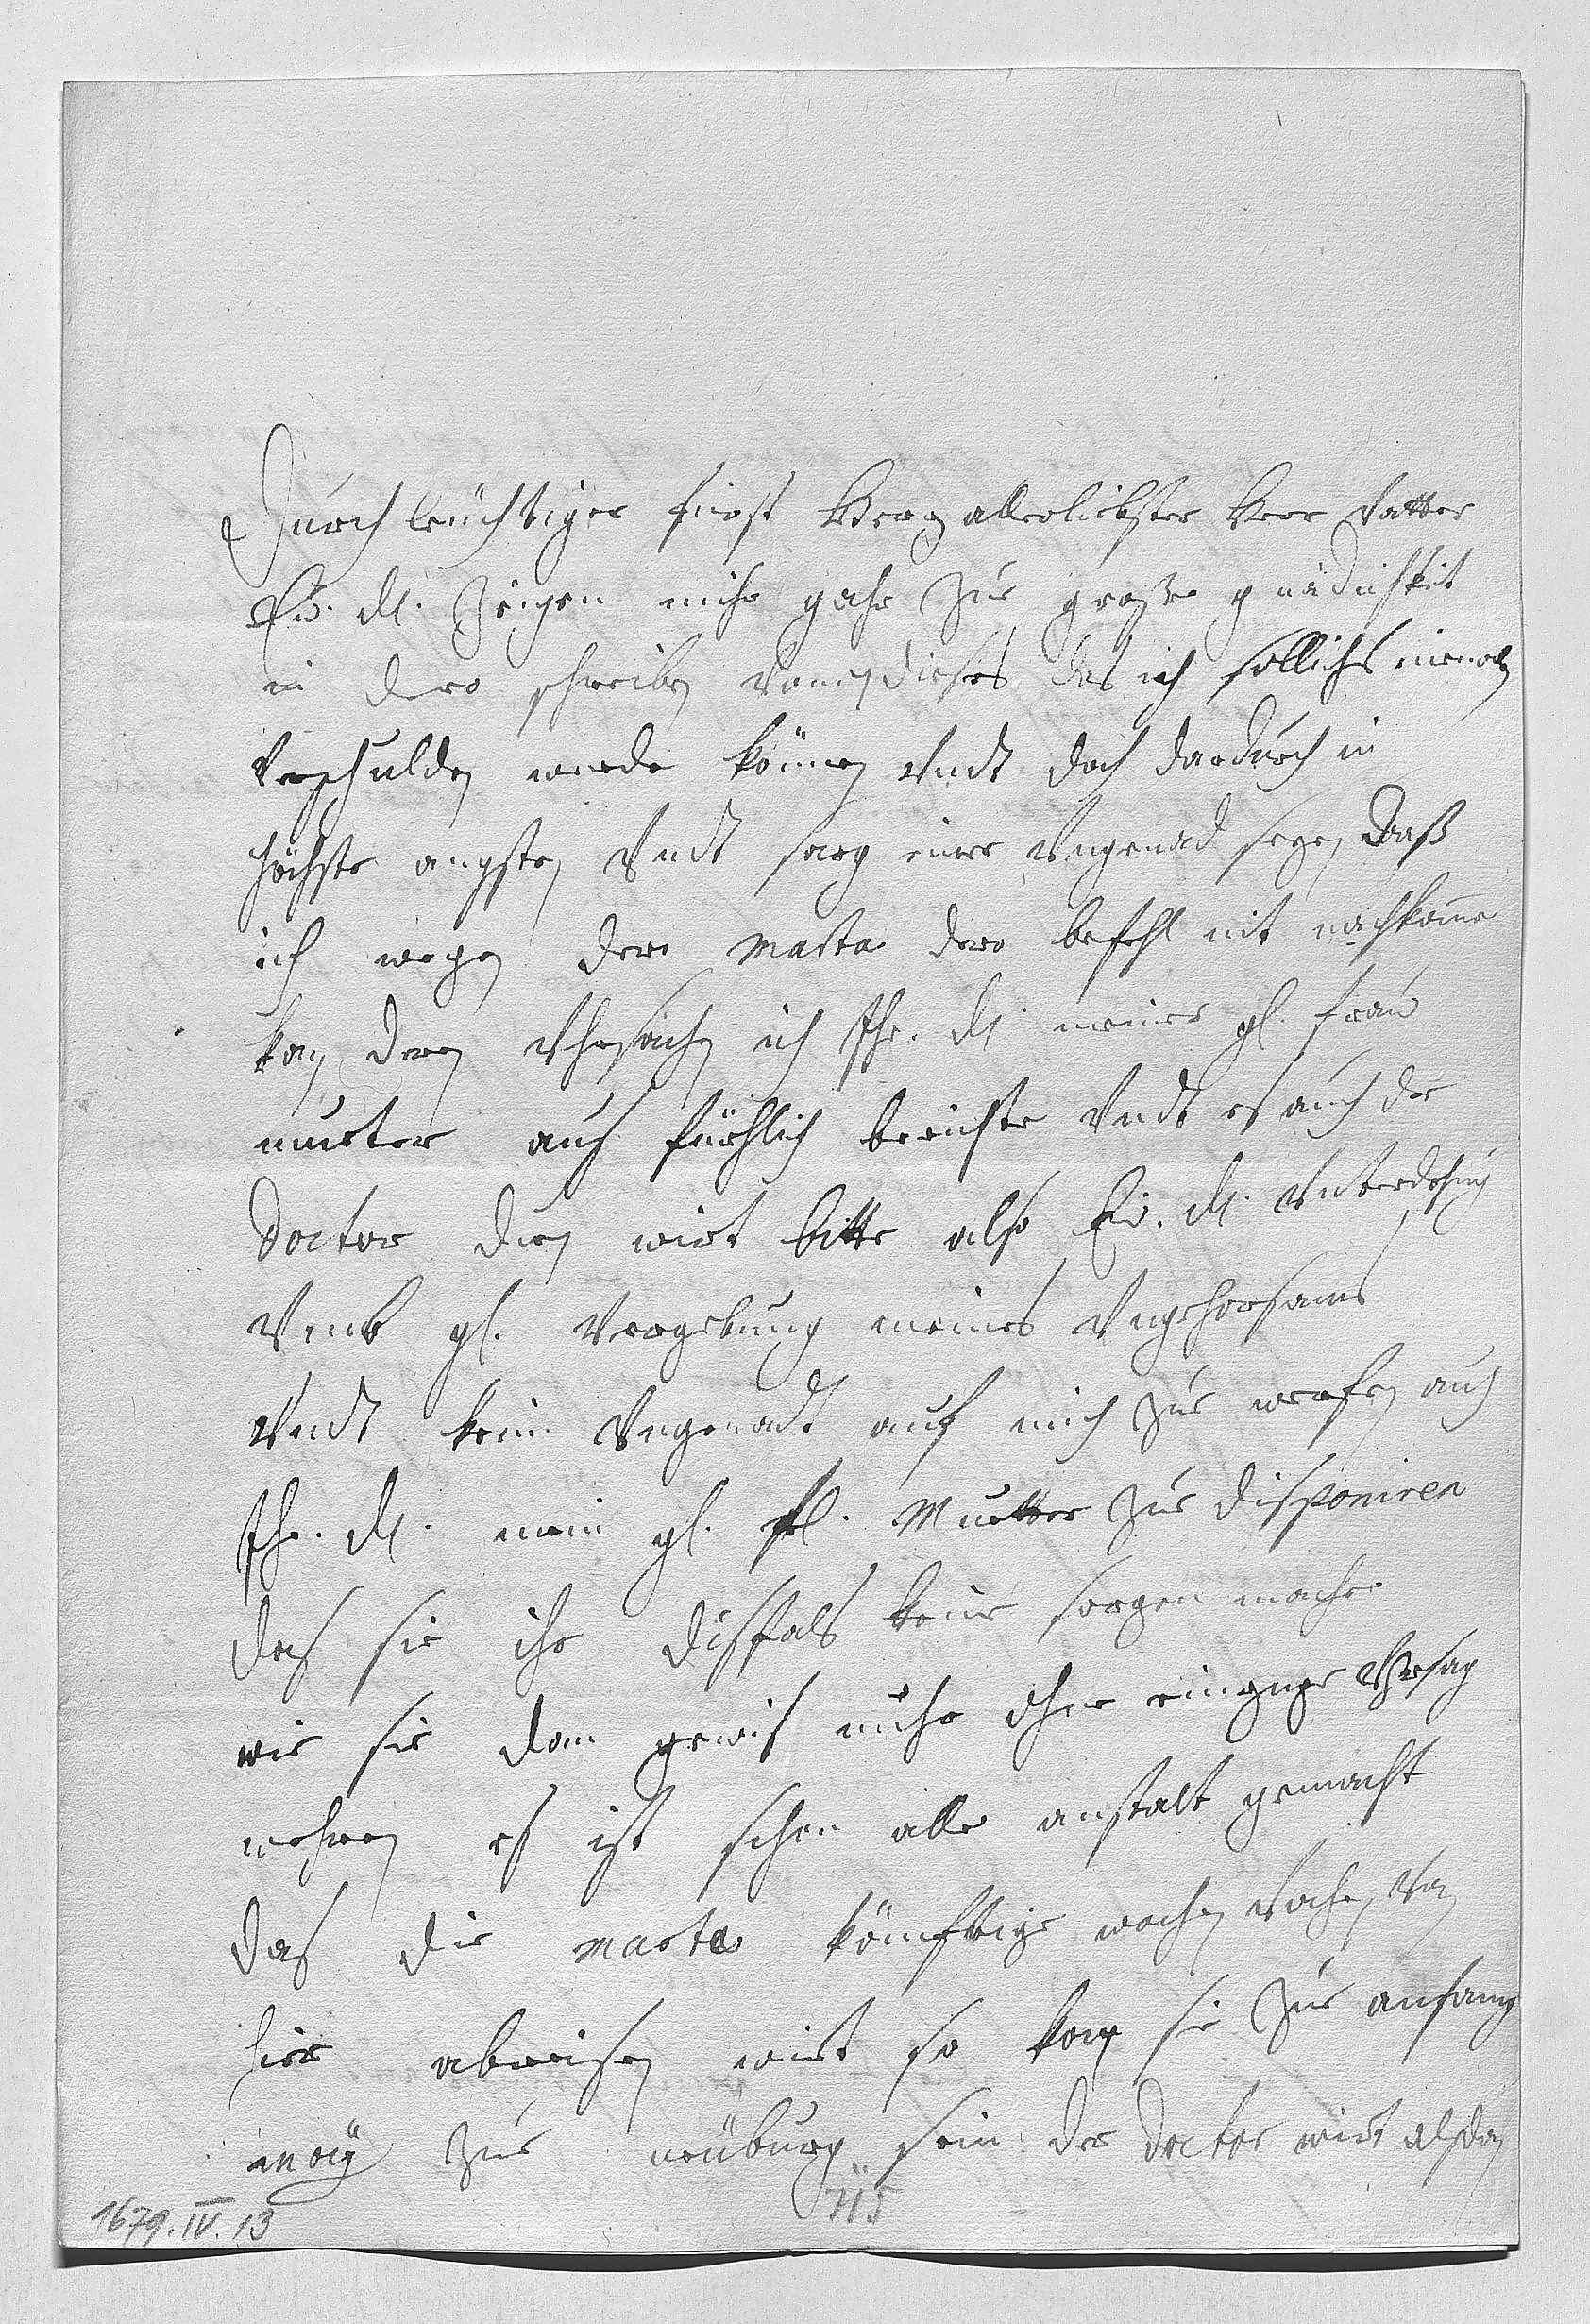 Durchleuchtiger fürst Herz allerliebster Herr Vatter
Ew. dl. Zeigen mihr gahr zu große gnädichkeit
in dero schreiben vom dieses das ich solliches niemalß
verschulden werde können Undt doch dardurch in
höchste angsten Undt sorg einer Ungenad seye daß
ich wegen der Marta dero befehl nit nachkomme
kan deren Uhrsachen ich Ihr. dl. meiner gl. frau
mutter ausführlich berichte Undt es auch der
Doctor duen wirt bitte also Ew. dl. Unterdehnig
Umb gl. Vergebung meines Ungehorsams
Undt kein Ungenadt auf mich zu werfen auch
Ihr. dl. mein gl. fr. Mutter zu disponiren
das sie ihr disfals keine sorgen mache
wie sie dan gewis nuhr ohne einzige Uhrsag
nehmen es ist schon alle anstalt gemacht
das die Marta kömftige wochen von
hier abreisen wirt so kan sie zu anfang
May zu neüburg sein der Doctor wirt alsdan
715
1679.IV.13